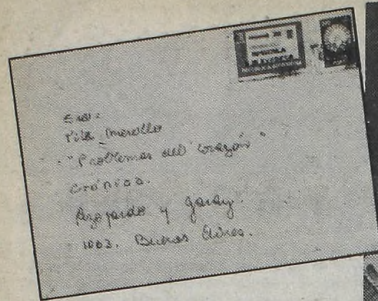 Sra.
Tita Merello
"Problemas del corazón"
crónica.
Azopardo y Garay.
1063. Buenos Aires.